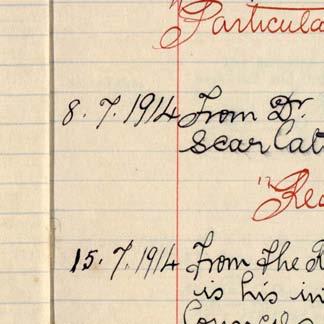 Particula
8.7.1914 From Dr.
Scar Cat
" Rec
15.7.1914 From the R
is his in